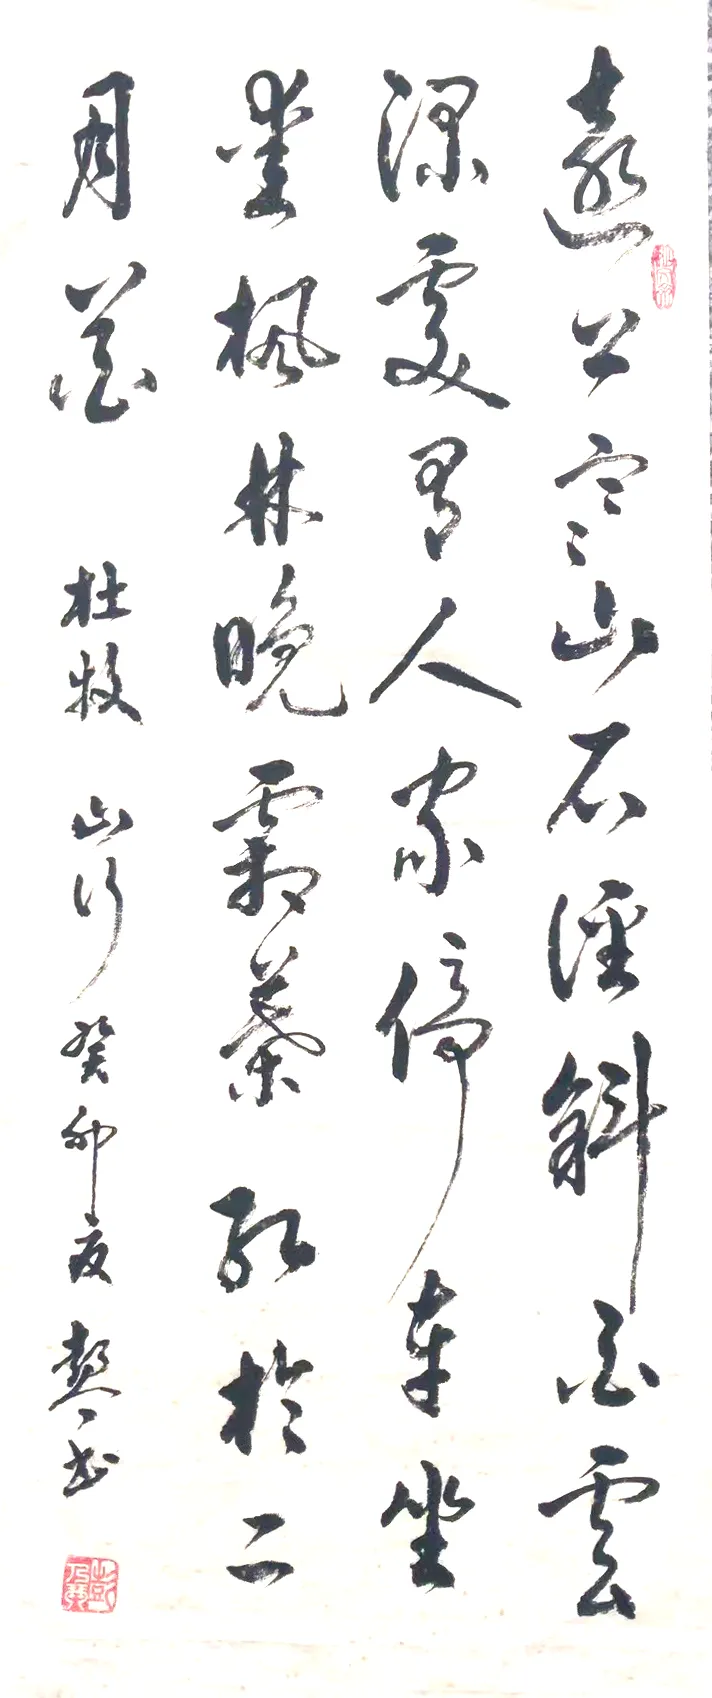 遠上寒山石徑斜白雲
深處有人家停車坐
愛楓林晚霜葉紅於二
月花 杜牧 山行 癸卯夏 书